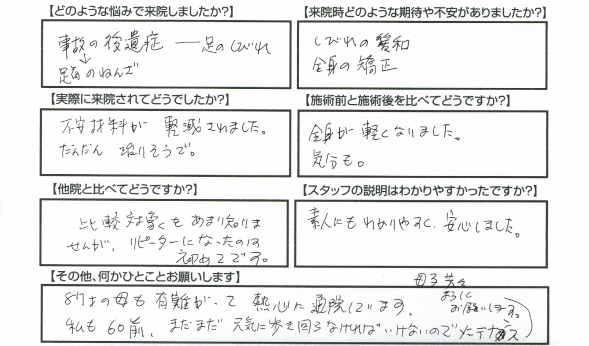 【どのような悩みで来院しましたか?】
事故の後遺症 ― 足のしびれ
↓
足首のねんざ
【来院時どのような期待や不安がありましたか?】
しびれの緩和
全身の矯正
【実際に来院されてどうでしたか?】
不安材料が 軽減されました。
だんだん 治りそうで。
【施術前と施術後を比べてどうですか?】
全身が 軽くなりました。
気分も。
【他院と比べてどうですか?】
比較対象をあまり知りま
せんが、リピーターになったのは
初めてです。
【スタッフの説明はわかりやすかったですか?】
素人にもわかりやすく、安心しました。
【その他、何かひとことお願いします】
87才の母も 有難がって 熱心に 通院しています。
私も 60前、まだまだ 元気に 歩き回らなければ いけないので メンテナンス
母子共々
よろしく
お願いします。